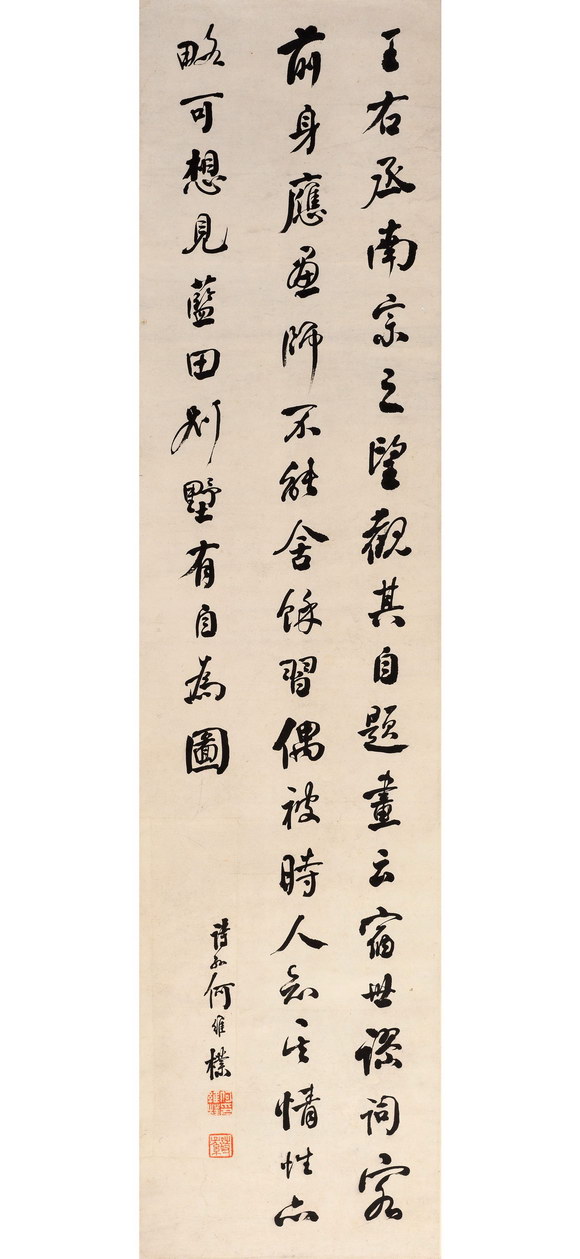 王右丞南宗之望觀其自題畫云宿世謬詞客
前身應画師不能舍餘習偶被時人知其情性亦
略可想見藍田別墅有自為圖
詩孫何維樸